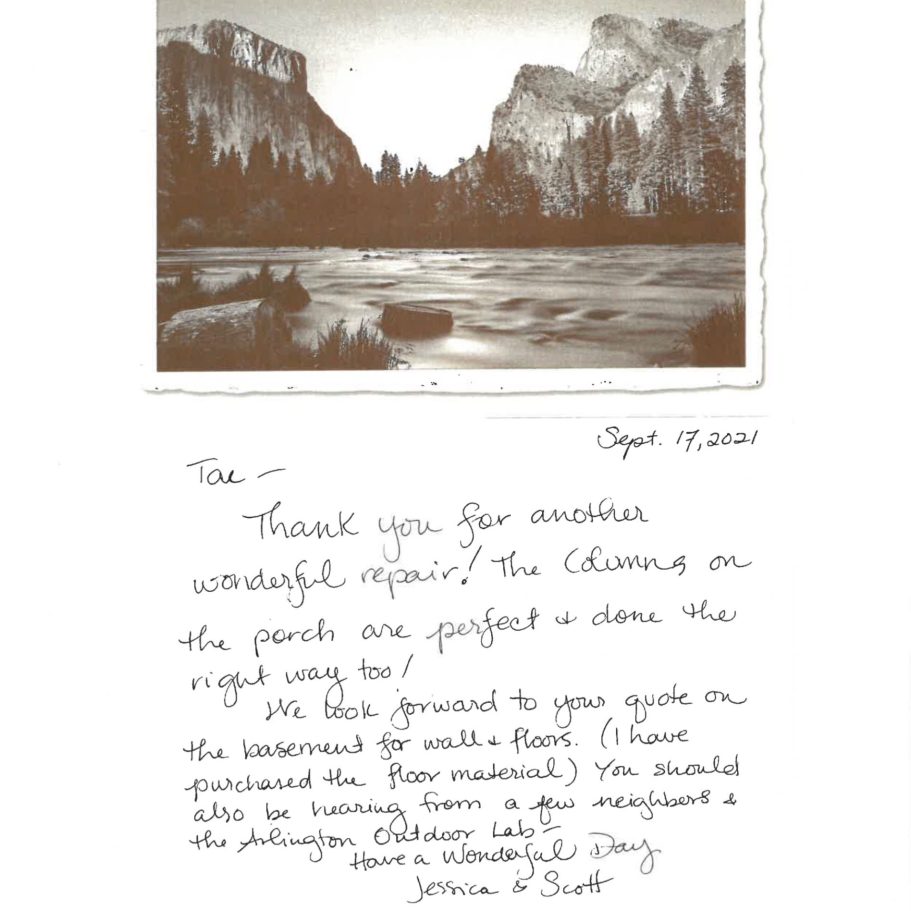 Sept. 17, 2021
Tae –
Thank you for another
wonderful repair! The Columns on
the porch are perfect & done the
right way too!
We look forward to your quote on
the basement for wall & floors. (I have
purchased the floor material) You should
also be hearing from a few neighbors &
the Arlington Outdoor Lab –
Have a Wonderful Day
Jessica & Scott